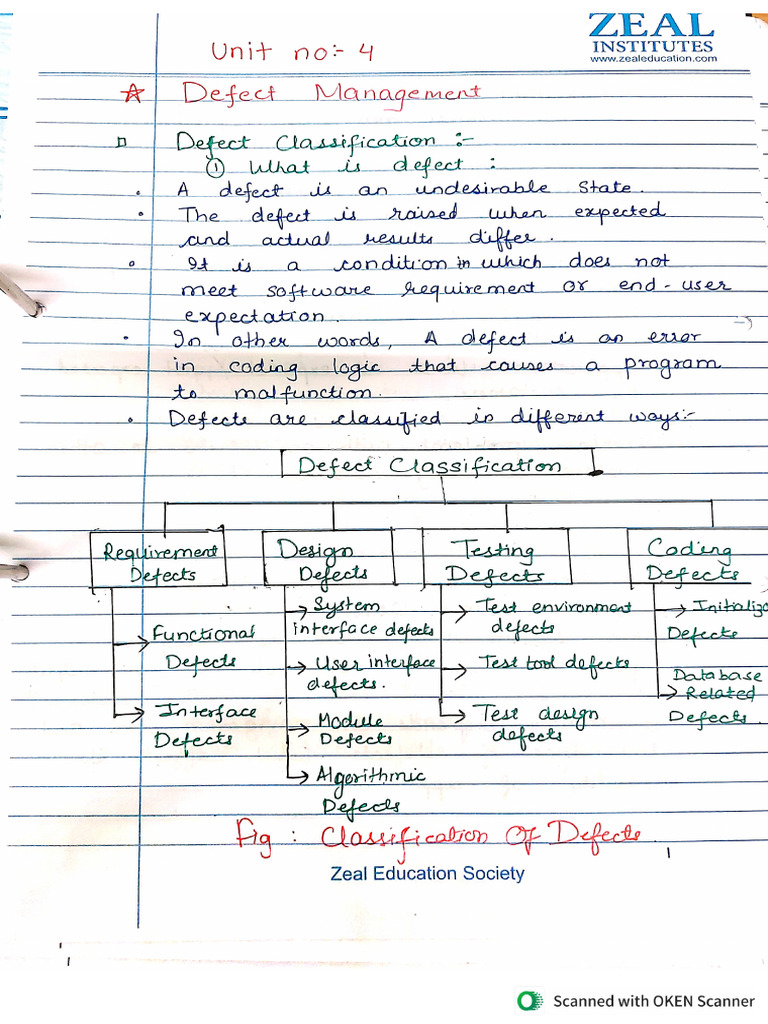 ZEAL
INSTITUTES
www.zealeducation.com
Unit no:- 4
☆ Defect Management
Defect Classification :-
① What is defect :
• A defect is an undesirable State.
• The defect is raised when expected
and actual results differ.
• It is a condition in which does not
meet software requirement or end-user
expectation.
• In other words, A defect is an error
in coding logic that causes a program
to malfunction.
• Defects are classified in different ways:-
Defect Classification
Requirement
Defects
Functional
Defects
Interface
Defects
Design
Defects
System
interface defects
User interface
defects.
Module
Defects
Algorithmic
Defects
Testing
Defects
Test environment
defects
Test tool defects
Test design
defects
Coding
Defects
Initializ
Defects
Database
Related
Defects.
Fig : Classification Of Defects
Zeal Education Society
Scanned with OKEN Scanner